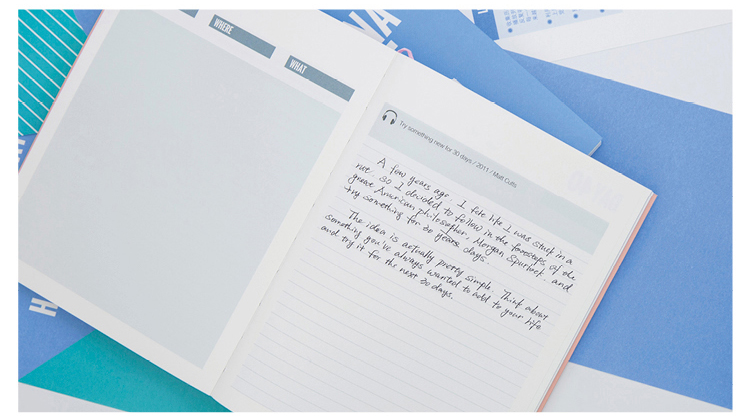 WHERE
WHAT
Try something new for 30 days / 2011 / Matt Cutts
A few years ago, I felt like I was stuck in a
rut. So I decided to follow in the footsteps of the
great American philosopher, Morgan Spurlock, and
try something for 30 years days.
The idea is actually pretty simple. Think about
something you've always wanted to add to your life
and try it for the next 30 days.